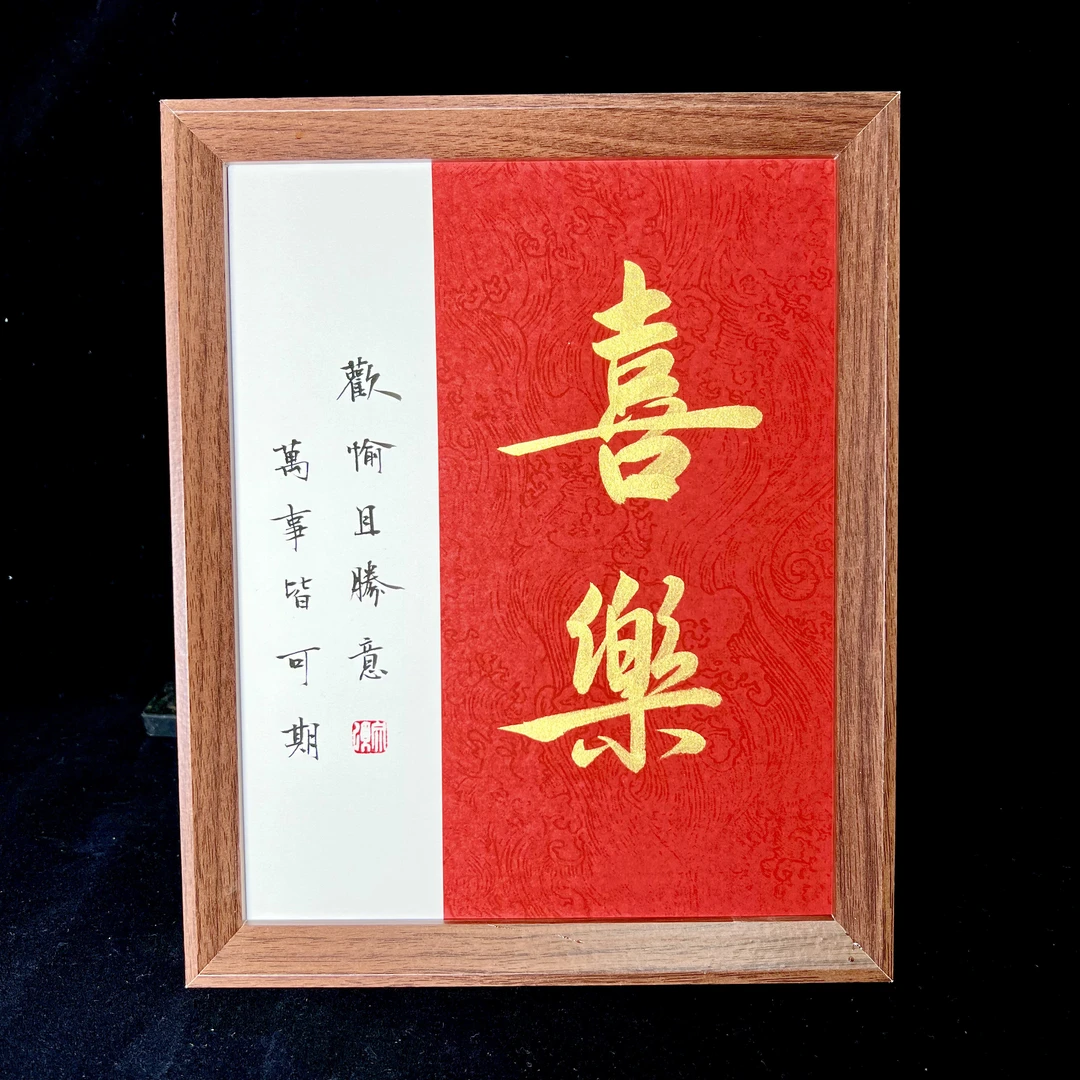 喜樂
歡愉且勝意
萬事皆可期